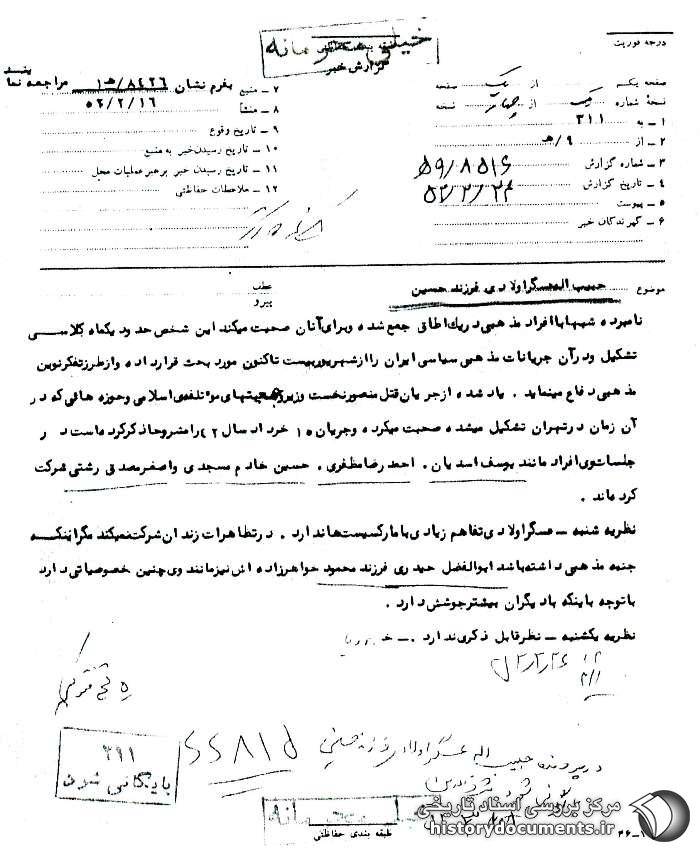 خیلی محرمانه
گزارش خبر
درجه فوریت
صفحه یکم از یک صفحه
نسخهٔ شماره یک از چهار نسخه
۱ ـ به ۳۱۱
۲ ـ از ۹/هـ
۳ ـ شماره گزارش ۵۹/۸۵۱۶
۴ ـ تاریخ گزارش ۵۲/۲/۲۴
۵ ـ پیوست
۶ ـ گیرندگان خبر
۷ ـ منبع بفرم نشان ۸۴۲۶/هـ۱ مراجعه نمایند
۸ ـ منشأ ۵۲/۲/۱۶
۹ ـ تاریخ وقوع
۱۰ ـ تاریخ رسیدن خبر به منبع
۱۱ ـ تاریخ رسیدن خبر برهبر عملیات محل
۱۲ ـ ملاحظات حفاظتی
موضوع حبیب اله عسگراولادی فرزند حسین
عطف
پیرو
نامبرده شبها با افراد مذهبی در یک اطاق جمع شده و برای آنان صحبت میکند این شخص حدود یکماه کلاسی
تشکیل و در آن جریانات مذهبی سیاسی ایران را از شهریور بیست تاکنون مورد بحث قرار داده و از طرز تفکر نوین
مذهبی دفاع مینماید . یاد شده از جریان قتل منصور نخست وزیر و جمعیتهای موتلفه‌ی اسلامی و حوزه هائی که در
آن زمان در تهران تشکیل میشده صحبت میکرده و جریان ۱۵ خرداد سال ۴۲ را مشروحا ذکر کرده است در
جلسات وی افراد مانند یوسف اسدیان . احمد رضا مظفری . حسین خادم مسجدی و اصغر مصدقی رشتی شرکت
کرده اند .
نظریه شنبه ـ عسگراولادی تفاهم زیادی با مارکسیست‌ها ندارد . در تظاهرات زندان شرکت نمیکند مگر اینکه
جنبه مذهبی داشته باشد ابوالفضل حیدری فرزند محمود خواهرزاده اش نیز مانند وی چنین خصوصیاتی دارد
با توجه باینکه با دیگران بیشتر جوشش دارد .
نظریه یکشنبه ـ نظر قابل ذکری ندارد .
در پرونده حبیب اله عسگراولادی فرزند حسین
۳۹۱
بایگانی شد
طبقه بندی حفاظتی
مرکز بررسی اسناد تاریخی
historydocuments.ir